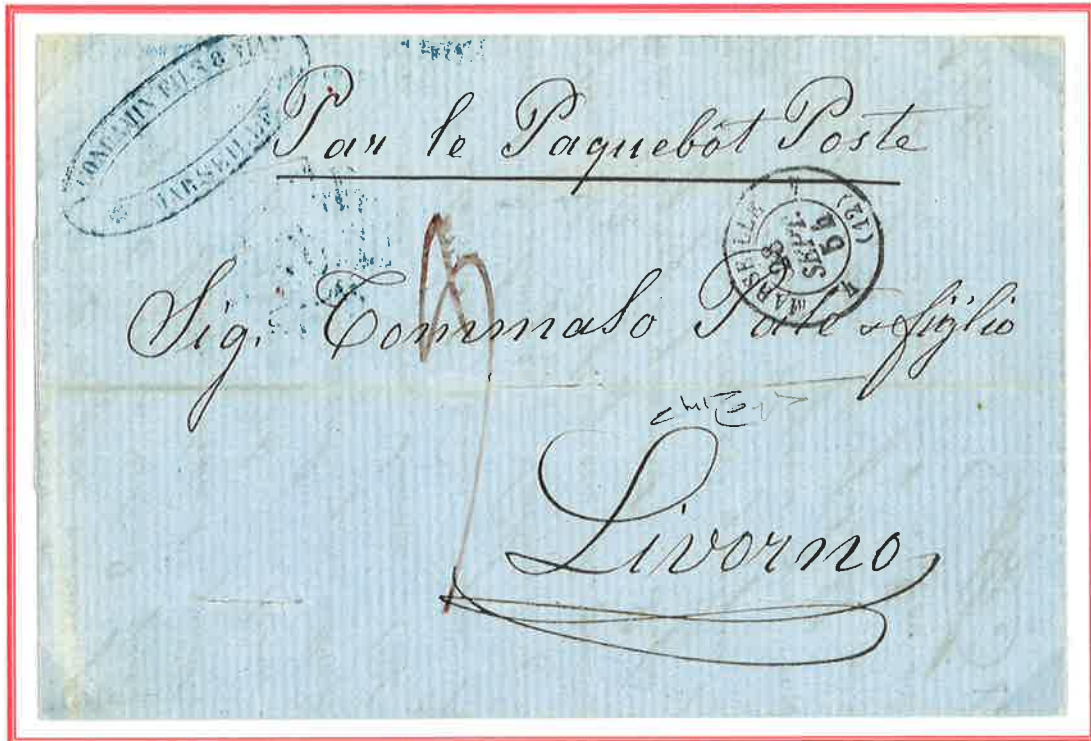 FILS &
MARSEILLE
Par le Paquebôt Poste
MARSEILLE
28
SEPT.
54
(12)
Sig. Tommaso Pate e figlio
Livorno